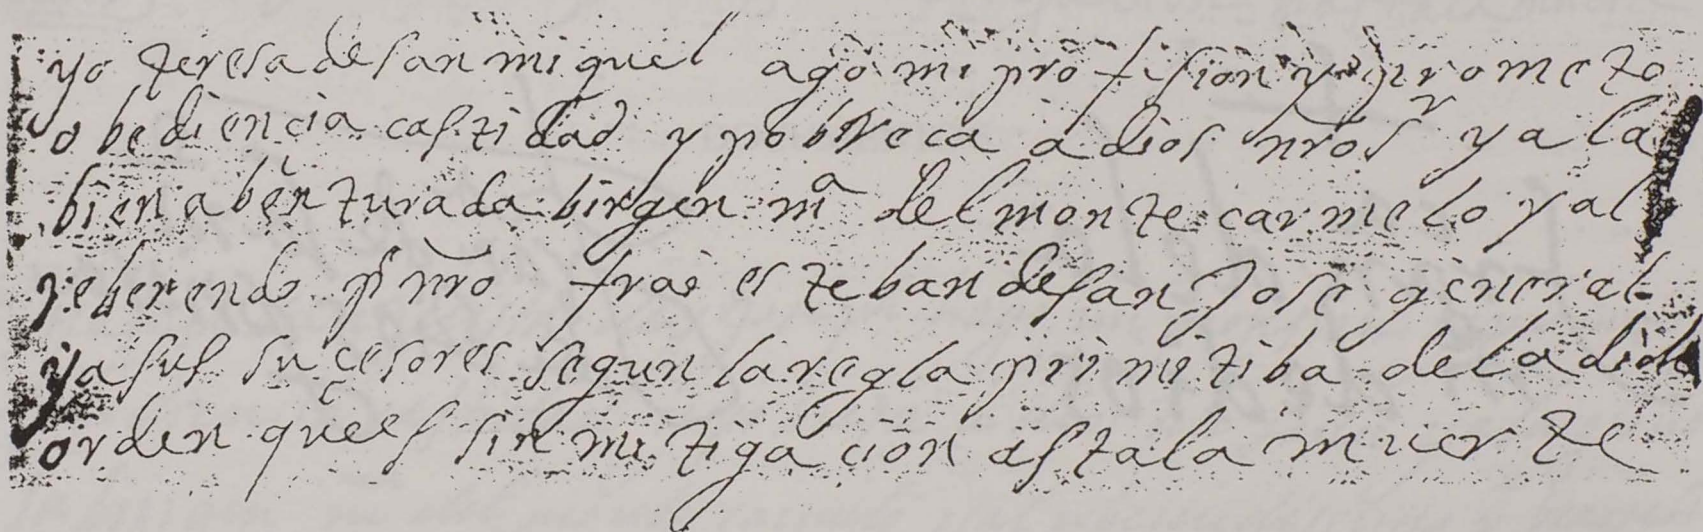 yo teresa de san miguel ago mi profision y prometo
obediencia castidad y pobreca a dios nro sr y a la
bien abenturada birgen ma del monte carmelo y al
reberendo pe nro frai esteban de san Jose general
y a sus sucesores segun la regla primitiba de la dicha
orden que es sin mitigacion asta la muerte